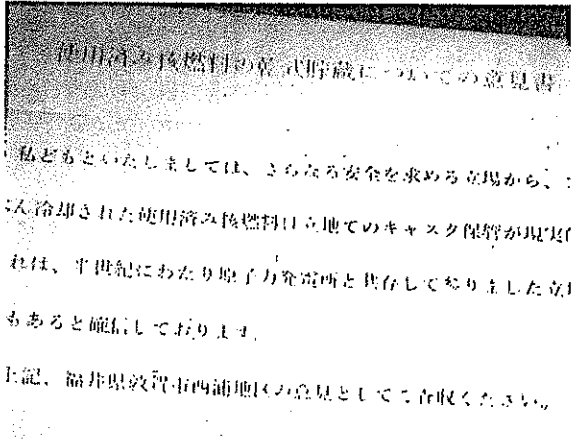 使用済み核燃料の乾式貯蔵についての意見書
私どもといたしましては、さらなる安全を求める立場から、
冷却された使用済み核燃料は立地でのキャスク保管が現実
れは、半世紀にわたり原子力発電所と共存して参りました立場
もあると確信しております。
上記、福井県敦賀市西浦地区の意見としてご査収ください。